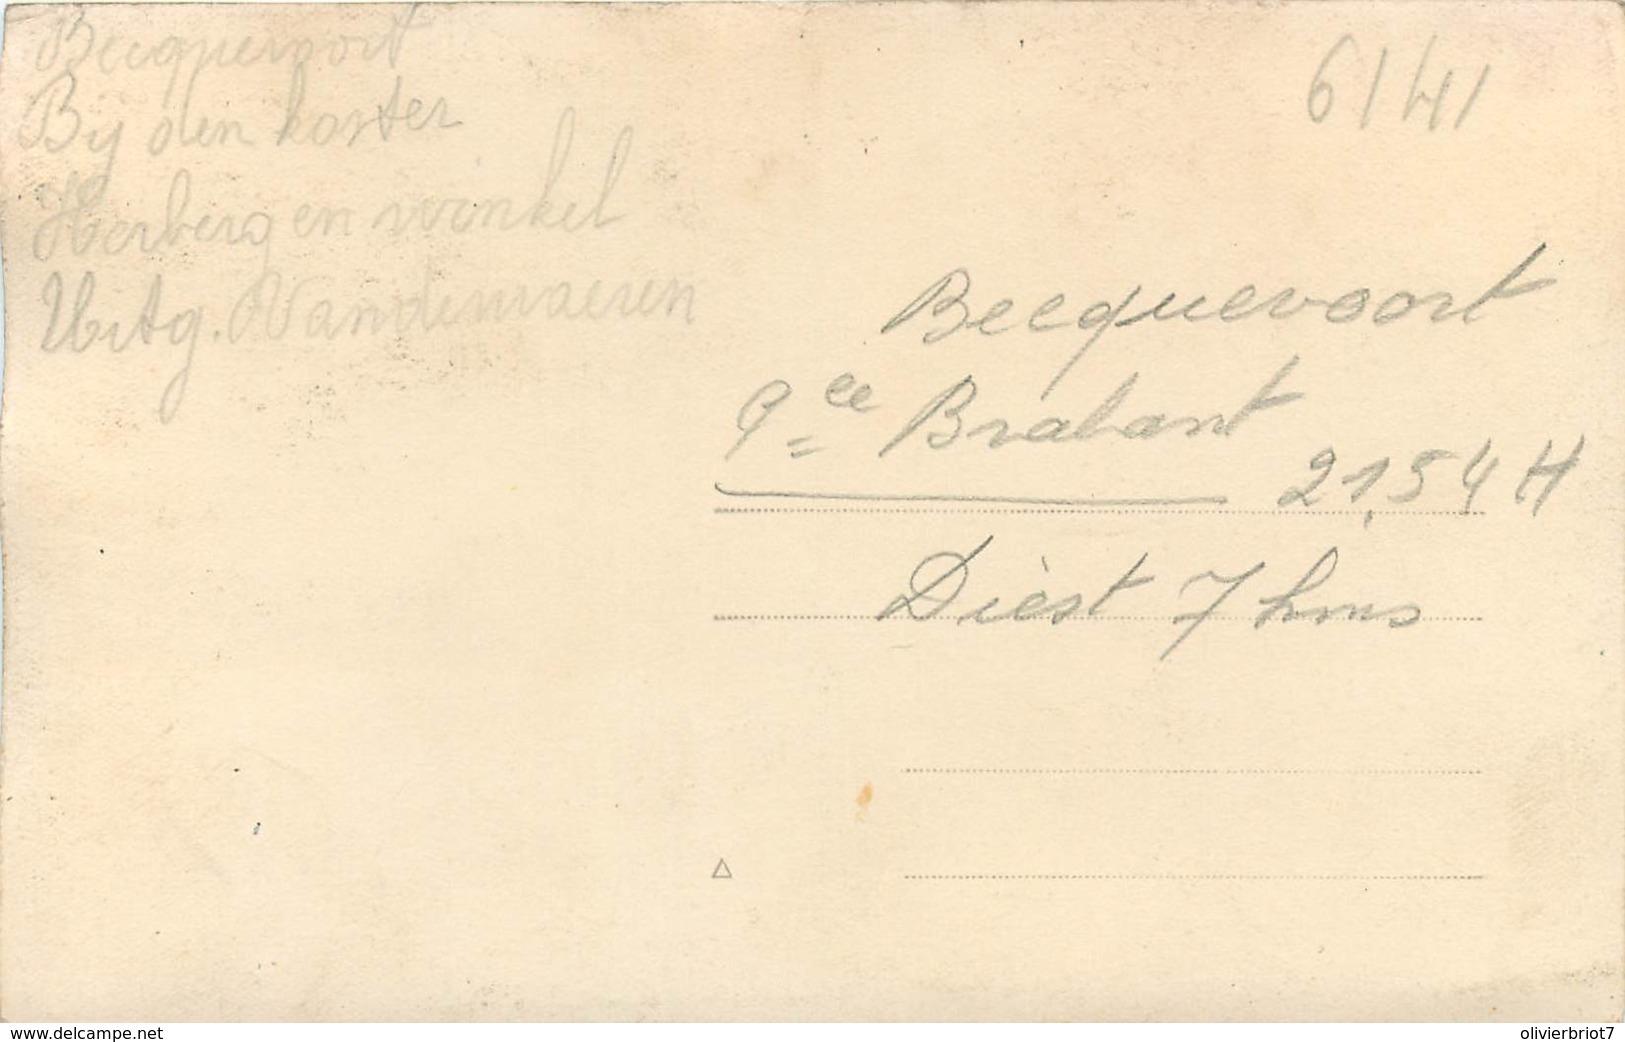 Becquevoort
Bij den koster
Herberg en winkel
Uitg. Vandewaeren
6141
Becquevoort
Brabant
21.54 H
Dièst 7 hms
www.delcampe.net
olivierbriot7